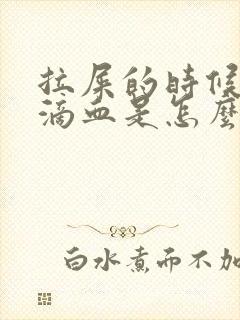 拉屎的時候
滴血是怎麼
白水煮而不加